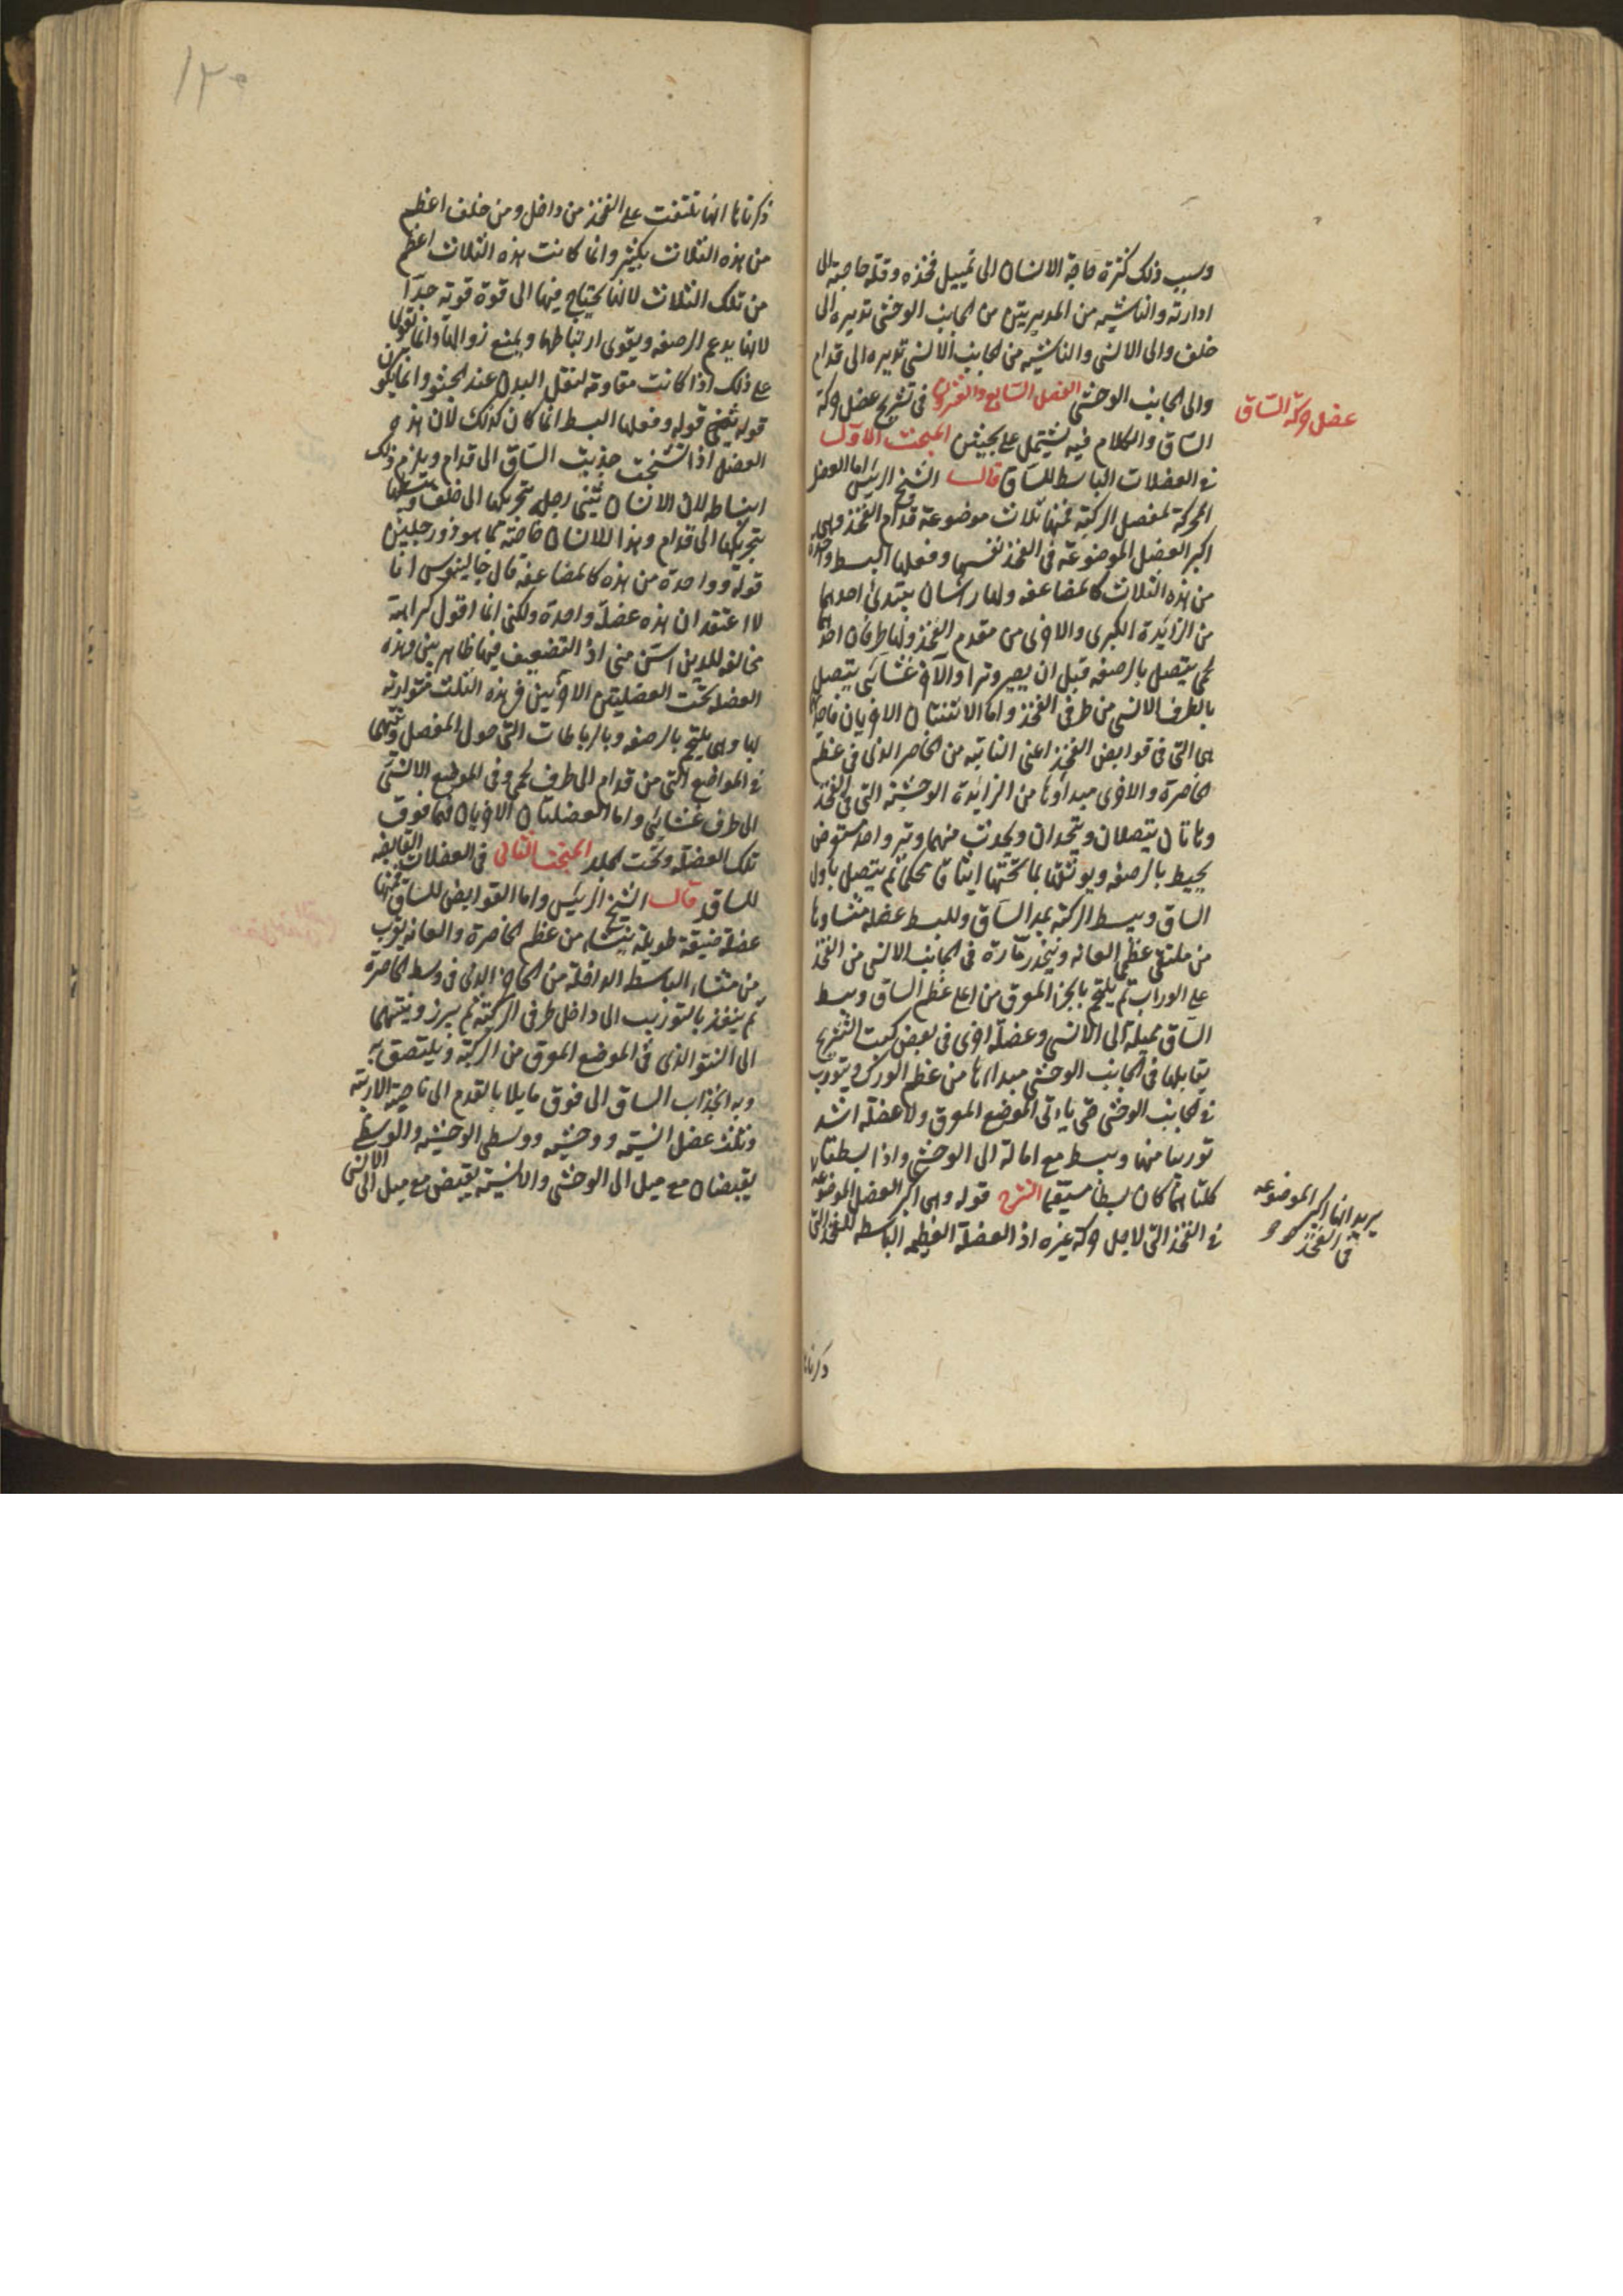 وسبب ذلك كثرة حاجة الانسان الى تمييل فخذه وقلة حاجته الى
ادارته والناشية من المديرتين من الجانب الوحشي تديره الى
خلف والى الانسي والناشية من الجانب الانسي تديره الى قدام
والى الجانب الوحشي الفصل السابع والعشرون في تشريح عضل حركة
عضل حركة الساق
الساق والكلام فيه يشتمل على بحثين المبحث الاول
في العضلات الباسطة للساق قال الشيخ الرئيس اما العضل
المحركة لمفصل الركبة فمنها ثلاث موضوعة قدام الفخذ وهي
اكبر العضل الموضوعة في الفخذ نفسها وفعلها البسط وواحدة
من هذه الثلاث كالمضاعفه ولها راسان يبتدئ احدهما
من الزائدة الكبرى والاخرى من مقدم الفخذ ولها طرفان احدهما
لحمي يتصل بالرصفه قبل ان يصير وترا والآخر غشائي يتصل
بالطرف الانسي من طرفي الفخذ واما الاثنتان الاخريان فاحدهما
هي التي في قوابض الفخذ اعني النابتة من الحاجز الذي في عظم
الخاصرة والاخرى مبداؤها من الزايدة الوحشية التي في الفخذ
وهاتان يتصلان ويتحدان ويحدث منهما وتر واحد مستعرض
يحيط بالرصفه ويوثقها بما تحتها ايثاقا محكما ثم يتصل باول
الساق ويبسط الركبة بمد الساق وللبسط عضله منشاوها
من ملتقى عظمي العانه وينحدر مارة في الجانب الانسي من الفخذ
على الوراب ثم يلتحم بالجزء المعرق من اعلى عظم الساق ويبسط
الساق مميلة الى الانسي وعضلة اخرى في بعض كتب التشريح
يقابلها في الجانب الوحشي مبداءها من عظم الورك ويتورب
في الجانب الوحشي حتى ياتي الموضع المعرق ولا عضلة اشد
توريبا منها ويبسط مع امالة الى الوحشي واذا بسطتا
كلتاهما كان بسطا مستقيما الشرح قوله وهي اكبر العضل الموضوعة
يريد انها اكبر الموضوعه
في الفخذ
في الفخذ التي لاجل حركة غيره اذ العضلة العظيمه الباسطه للفخذ التي
ذكرناها
١٣٥
ذكرناها انها تلتفت على الفخذ من داخل ومن خلف اعظم
من هذه الثلاث بكثير وانما كانت هذه الثلاث اعظم
من تلك الثلاث لانها يحتاج فيها الى قوة قوية جدا
لانها يدعم الرصفه ويقوى ارتباطها ويمنع زوالها وانما تقوى
على ذلك اذا كانت مقاومة لثقل البدن عند الجثو وانما يكون
قوله وفعلها البسط انما كان كذلك لان هذه
العضل اذا تشنجت جذبت الساق الى قدام ويلزم ذلك
انبساطه لان الانسان يثني رجله بتحريكها الى خلف ويبسطها
بتحريكها الى قدام وهذا للانسان خاصة مما هو ذو رجلين
قوله وواحدة من هذه كالمضاعفه قال جالينوس انا
لا اعتقد ان هذه عضلة واحدة ولكني انما اقول كراهة
مخالفه للذين اسن مني اذ التضعيف فيها ظاهر بين وهذه
العضله تحت العضلتين الاخريين في هذه الثلث
لها وهي يلتحم بالرصفه وبالرباطات التي حول المفصل وينتهي
في المواضع التي من قدام الى طرف لحمي وفي الموضع الانسي
الى طرف غشائي واما العضلتان الاخريان فهما فوق
تلك العضلة وتحت الجلد المبحث الثاني في العضلات القابضه
للساق قال الشيخ الرئيس واما القوابض للساق فمنها
عضلة ضيقة طويلة ينشاء من عظم الخاصرة والعانه بقرب
من منشاء الباسطه الداخلة من الحاجز الذي في وسط الخاصرة
ثم ينفذ بالتوريب الى داخل طرفي الركبة ثم يبرز وينتهي
الى النتو الذي في الموضع المعرق من الركبة ويلتصق به
وبه انجذاب الساق الى فوق مايلا بالقدم الى ناحية الاربية
وثلاث عضل انسية ووحشية ووسطى الوحشية والوسطى
يقبضان مع ميل الى الوحشي والانسية يقبض مع ميل الى الانسي